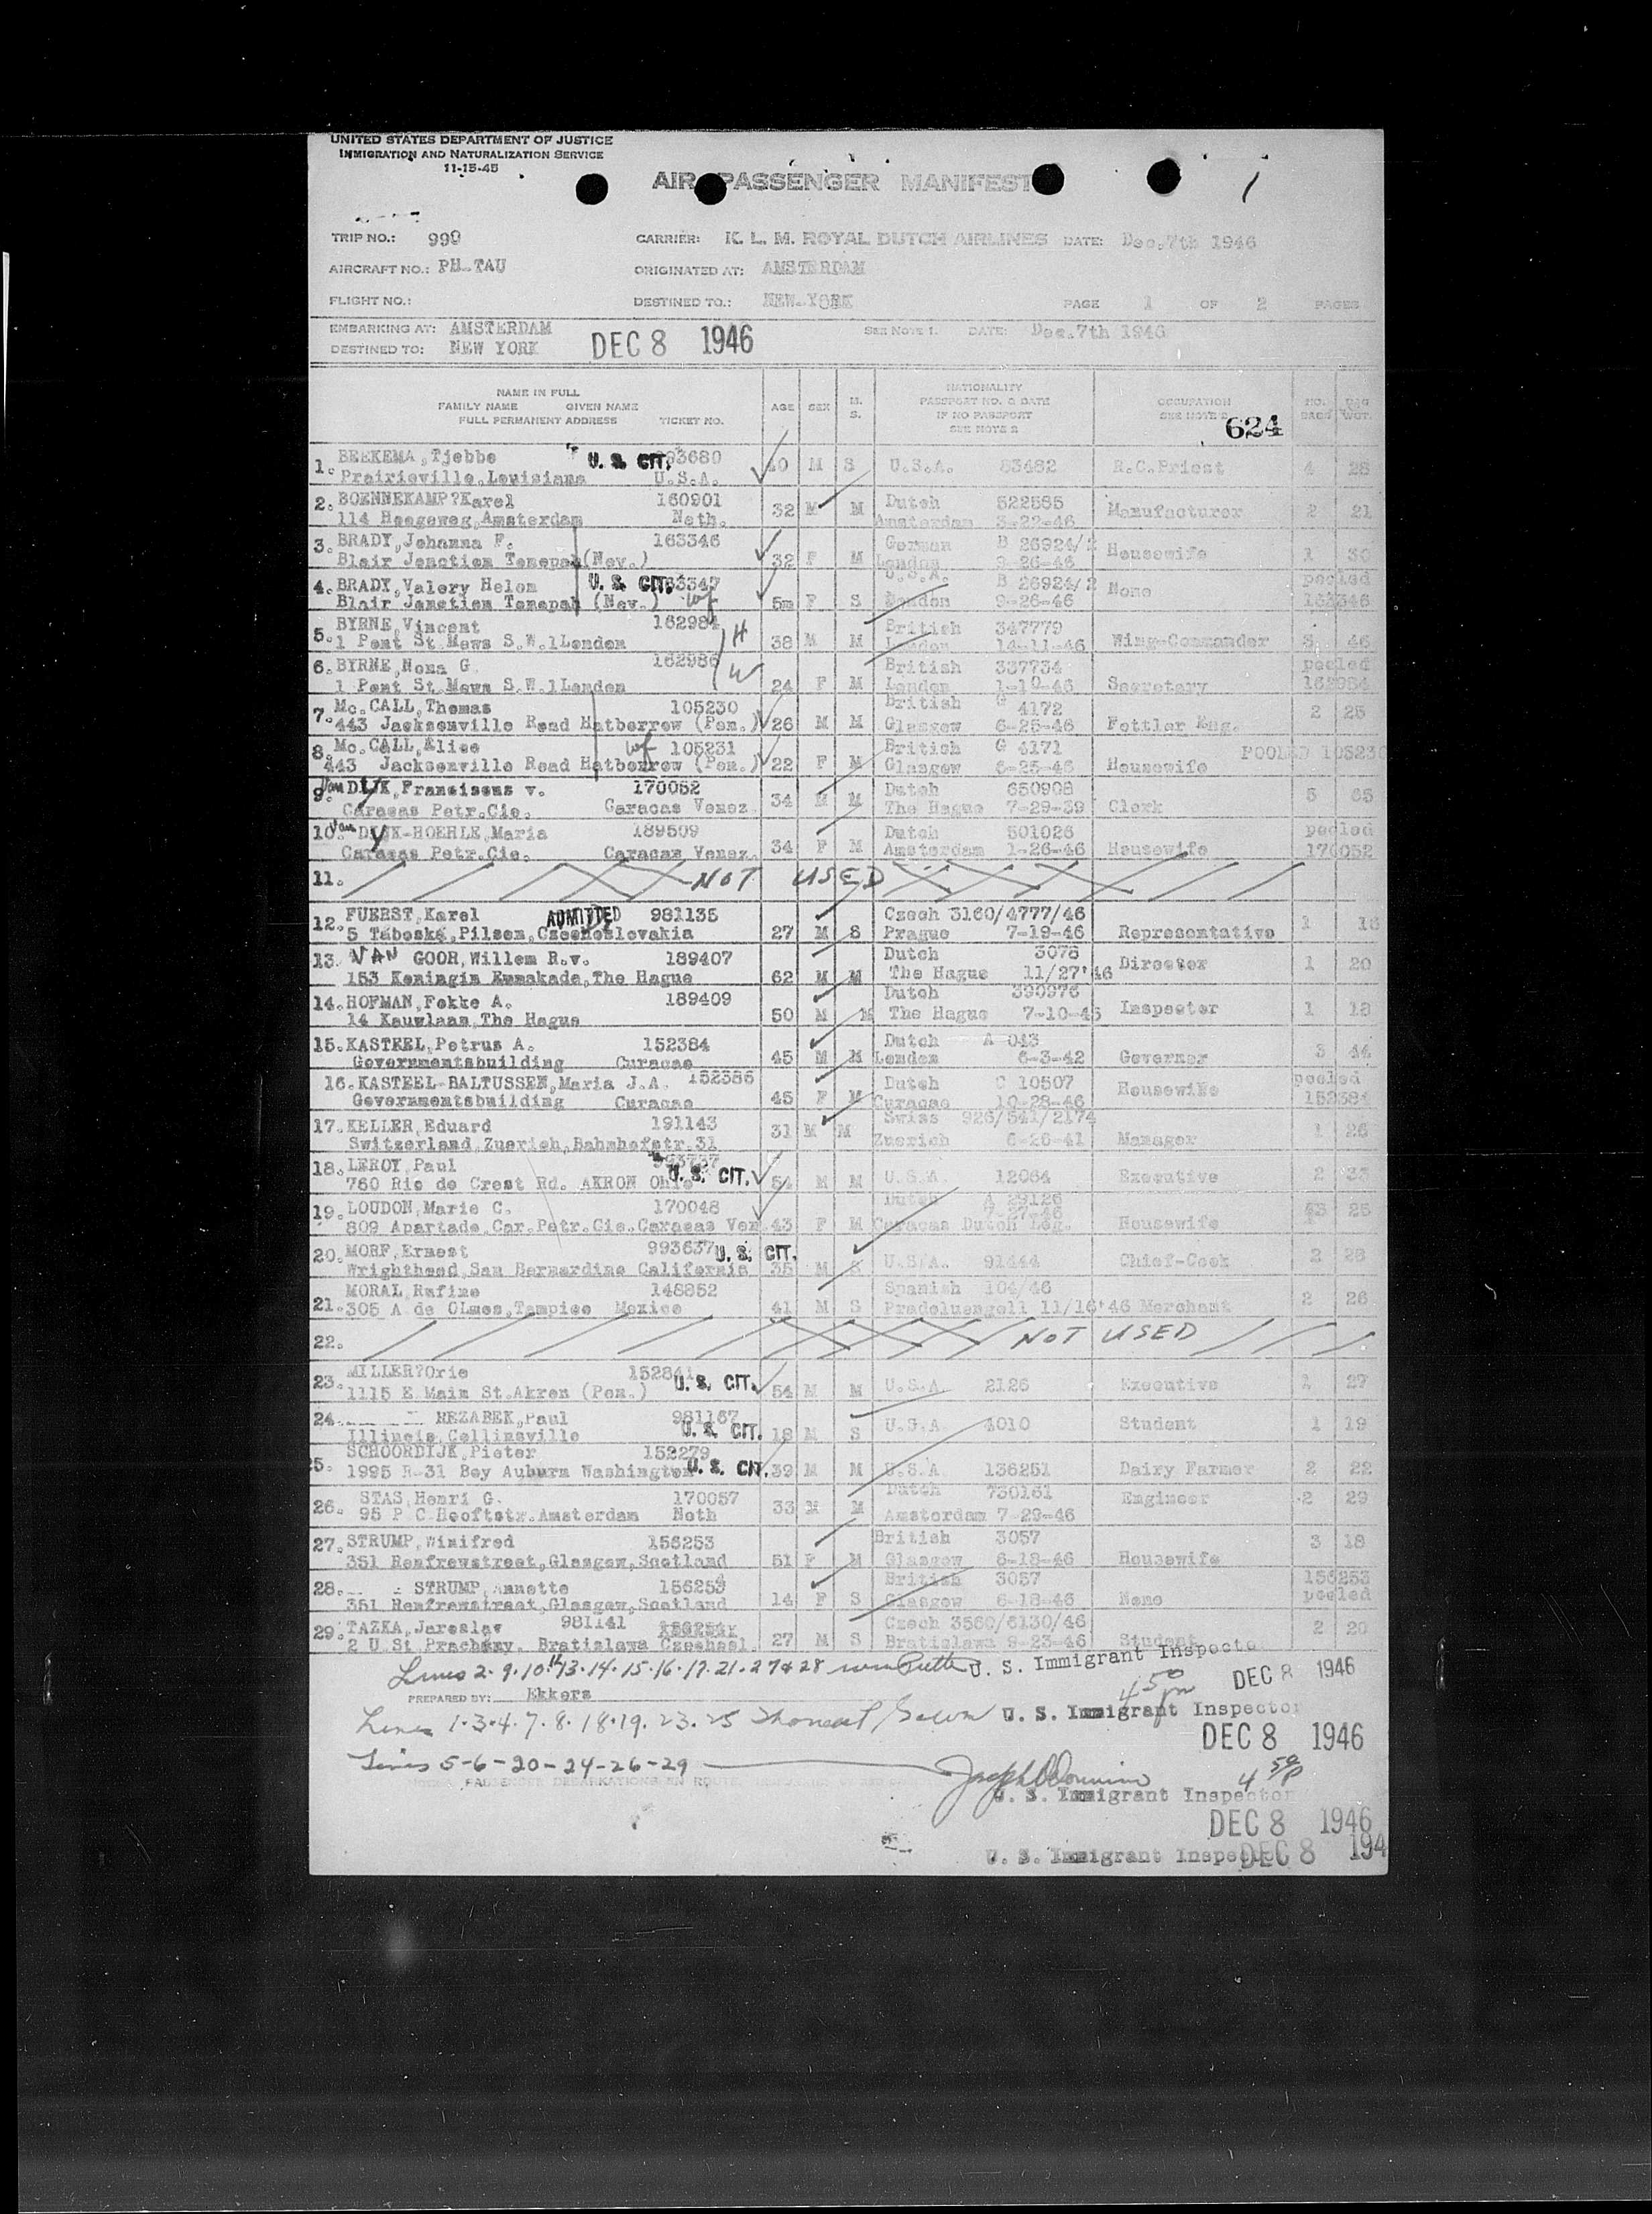 UNITED STATES DEPARTMENT OF JUSTICE
IMMIGRATION AND NATURALIZATION SERVICE
11-15-45
AIR PASSENGER MANIFEST
1
TRIP NO.: 999 CARRIER: K. L. M. ROYAL DUTCH AIRLINES DATE: Dec.7th 1946
AIRCRAFT NO.: PH-TAU ORIGINATED AT: AMSTERDAM
FLIGHT NO.: DESTINED TO.: NEW-YORK PAGE 1 OF 2 PAGES
EMBARKING AT: AMSTERDAM SEE NOTE 1. DATE: Dec.7th 1946
DESTINED TO: NEW YORK DEC 8 1946
NAME IN FULL
FAMILY NAME GIVEN NAME
FULL PERMANENT ADDRESS TICKET NO.
AGE SEX M. S.
NATIONALITY
PASSPORT NO. & DATE
IF NO PASSPORT
SEE NOTE 2
OCCUPATION
SEE NOTE 2
624
NO. BAGS BAG WGT.
1. BEEKEMA, Tjebbe U. S. CIT. 993680 40 M S U.S.A. 83482 R.C.Priest 4 28
Prairieville, Louisiana U.S.A.
2. BOENNEKAMP?Karel 160901 32 M M Dutch 522585 Manufacturer 2 21
114 Hoogeweg, Amsterdam Neth. Amsterdam 3-22-46
3. BRADY, Johanna F. 163346 32 F M German B 26924/2 Housewife 1 30
Blair Jonction Tonopah (Nev.) London 9-26-46
4. BRADY, Valery Helen U. S. CIT. 163347 5m F S U.S.A. B 26924/2 None pooled
Blair Jonction Tonopah (Nev.) London 9-26-46 163346
5. BYRNE, Vincent 162984 H 38 M M British 347779 Wing-Commander 3 46
1 Pont St.Mews S.W.1London London 14-11-46
6. BYRNE, Nona G. 162986 W 24 F M British 337734 Secretary pooled
1 Pont St.Mews S.W.1London London 1-10-46 162984
7. Mc.CALL, Thomas 105230 26 M M British G 4172 Fettler Eng. 2 25
443 Jacksonville Road Hatborrow (Pen.) Glasgow 6-25-46
8. Mc.CALL, Alice wf 105231 22 F M British G 4171 Housewife POOLED 105230
443 Jacksonville Road Hatborrow (Pen.) Glasgow 6-25-46
9. Van DIJK, Franciscus v. 170052 34 M M Dutch 650908 Clerk 5 65
Caracas Petr.Cie. Caracas Venez. The Hague 7-29-39
10. Van DIJK-HOEHLE, Maria 189509 34 F M Dutch 501026 Housewife pooled
Caracas Petr.Cie. Caracas Venez. Amsterdam 1-26-46 170052
11. NOT USED
12. FUERST, Karel ADMITTED 981135 27 M S Czech 3160/4777/46 Representative 1 16
5 Taboska, Pilsen, Czechoslovakia Prague 7-19-46
13. VAN GOOR, Willem R.v. 189407 62 M M Dutch 3078 Director 1 20
153 Koningin Emmakade, The Hague The Hague 11/27'46
14. HOFMAN, Fokke A. 189409 50 M M Dutch 390976 Inspector 1 18
14 Kauwlaan, The Hague The Hague 7-10-45
15. KASTEEL, Petrus A. 152384 45 M M Dutch A 043 Governor 3 44
Governmentsbuilding Curacao London 6-3-42
16. KASTEEL-BALTUSSEN, Maria J.A. 152385 45 F M Dutch C 10507 Housewife pooled
Governmentsbuilding Curacao Curacao 10-28-46 152384
17. KELLER, Eduard 191143 31 M M Swiss 926/541/2174 Manager 1 26
Switzerland, Zuerich, Bahnhofstr.31 Zuerich 6-26-41
18. LEROY, Paul U. S. CIT. 54 M M U.S.A. 12064 Executive 2 33
760 Rio de Crest Rd. AKRON Ohio
19. LOUDON, Marie C. 170048 43 F M Dutch A 29126 7-27-46 Housewife 25
809 Apartado, Car.Petr.Cie.Caracas Ven. Caracas Dutch Leg.
20. MORF, Ernest 993637 U. S. CIT. 35 M S U.S.A. 91444 Chief-Cook 2 28
Wrighthood, San Bernardino California
21. MORAL, Rufino 148852 41 M S Spanish 104/46 Merchant 2 26
305 A de Olmos, Tampico Mexico Pradoluengoll 11/16'46
22. NOT USED
23. MILLER?Orie 152841 U. S. CIT. 54 M M U.S.A. 2126 Executive 1 27
1115 E.Main St.Akron (Pen.)
24. REZABEK, Paul 981167 U. S. CIT. 18 M S U.S.A. 4010 Student 1 19
Illinois, Collinsville
25. SCHOORDIJK, Pieter 152279 U. S. CIT. 39 M M U.S.A. 136251 Dairy Farmer 2 22
1995 R-31 Boy Auburn Washington
26. STAS, Henri G. 170057 33 M M Dutch 730161 Engineer 2 29
95 P C Hooftstr.Amsterdam Neth Amsterdam 7-29-46
27. STRUMP, Winifred 156253 51 F M British 3057 Housewife 3 18
351 Renfrewstreet, Glasgow, Scotland Glasgow 6-18-46
28. STRUMP, Annette 156254 14 F S British 3057 None 156253
351 Renfrewstreet, Glasgow, Scotland Glasgow 6-18-46 pooled
29. TAZKA, Jaroslav 981141 27 M S Czech 3560/6130/46 Student 2 20
2 U St Prachary. Bratislawa Czechosl. Bratislawa 9-23-46
Lines 2·9·10·12·13·14·15·16·17·21·27&28 U. S. Immigrant Inspector
4 50 pm DEC 8 1946
PREPARED BY: Ekkers
Lines 1·3·4·7·8·18·19·23·25 U. S. Immigrant Inspector
DEC 8 1946
Lines 5-6-20-24-26-29 4 50 p
U. S. Immigrant Inspector
DEC 8 1946
U. S. Immigrant Inspector DEC 8 194